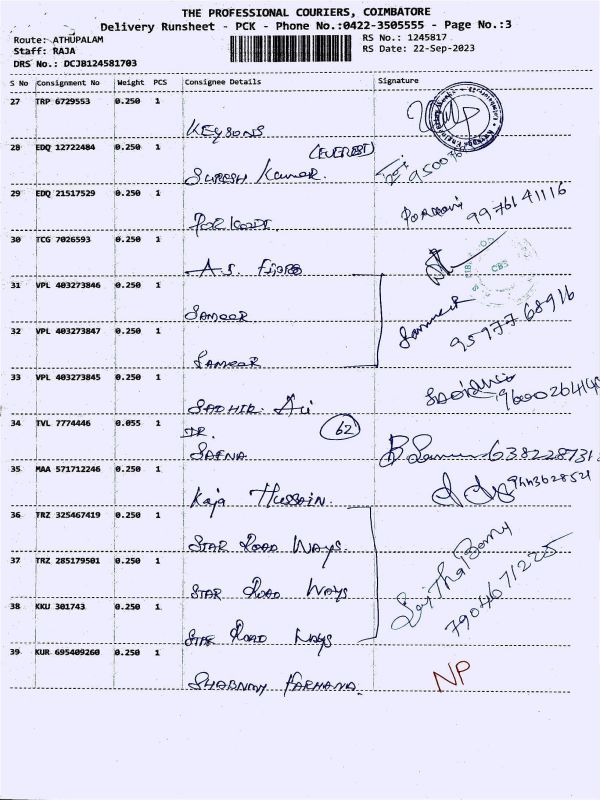 THE PROFESSIONAL COURIERS, COIMBATORE
Delivery Runsheet - PCK - Phone No.:0422-3505555 - Page No.:3
Route: ATHUPALAM
RS No.: 1245817
Staff: RAJA
RS Date: 22-Sep-2023
DRS No.: DCJB124581703
S No Consignment No Weight PCS Consignee Details Signature
27 TRP 6729553 0.250 1
KEYSONS
28 EDQ 12722484 0.250 1 (EVEREST)
SURESH Kumar.
29 EDQ 21517529 0.250 1
9976141116
30 TCG 7026593 0.250 1
A.S.
CBS
31 VPL 403273846 0.250 1
SAMEER
95977 68916
32 VPL 403273847 0.250 1
SAMEER
33 VPL 403273845 0.250 1
SADHIR. Ali
34 TVL 7774446 0.055 1
DR. 62
SAFNA
35 MAA 571712246 0.250 1
Kaja Hussain.
36 TRZ 325467419 0.250 1
STAR ROAD WAYS.
37 TRZ 285179501 0.250 1
STAR ROAD WAYS
7904671225
38 KKU 301743 0.250 1
STAR ROAD WAYS
39 KUR 695409260 0.250 1
NP
SHABNAM FARHANA.